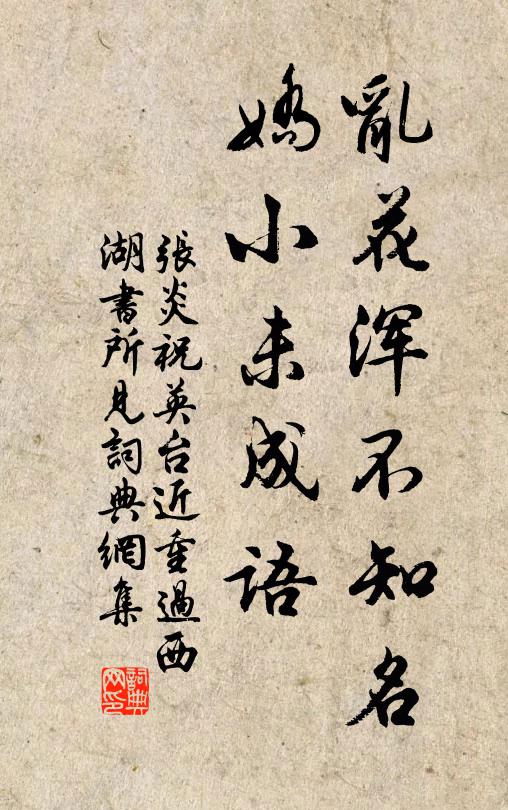 亂花浑不知名
嬌小未成语
張炎祝英台近重過西
湖書所見詞典網集
詞典网印